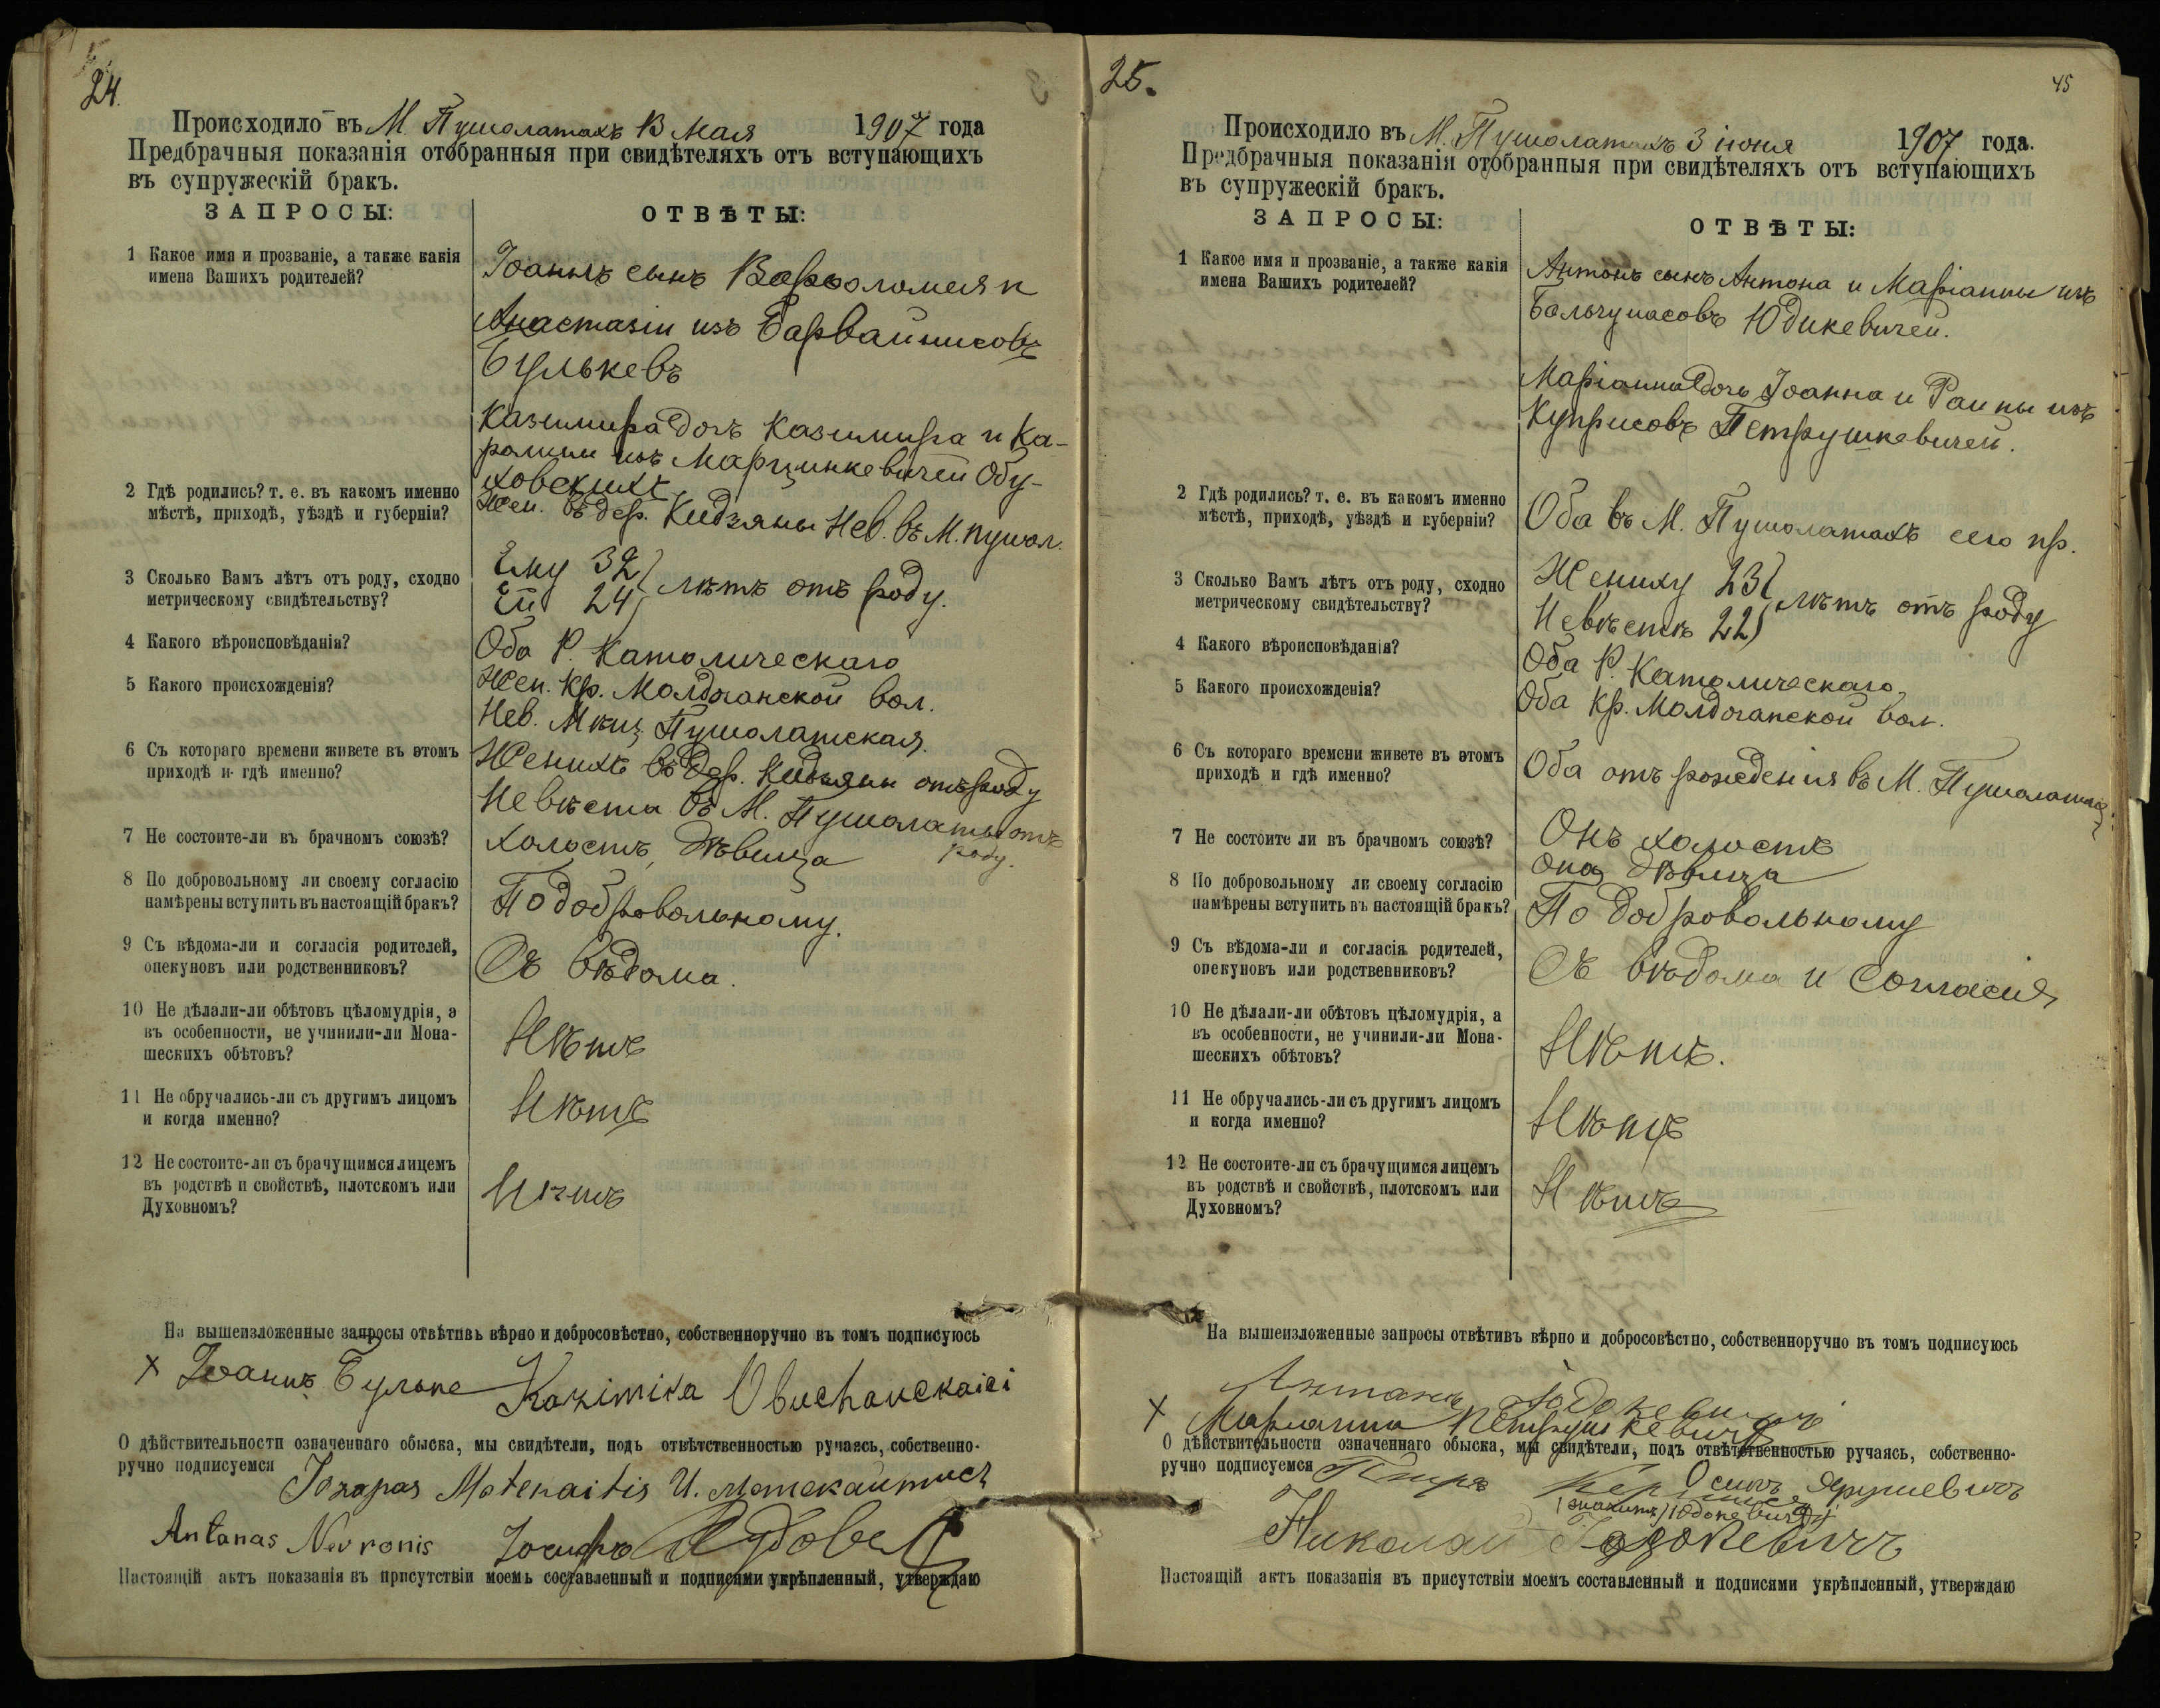 24.
Происходило въ М Пушолатахъ 13 Мая 1907 года
Предбрачныя показанія отобранныя при свидѣтеляхъ отъ вступающихъ
въ супружескій бракъ.
ЗАПРОСЫ: ОТВѢТЫ:
1 Какое имя и прозваніе, а также какія
имена Вашихъ родителей?
Іоаннъ сынъ Варѳоломея и
Анастазіи изъ Барвайнисовъ
Булькевъ
Казимира дочь Казимира и Ка-
ролины изъ Марцинкевичей Обу-
ховскихъ
2 Гдѣ родились? т. е. въ какомъ именно
мѣстѣ, приходѣ, уѣздѣ и губерніи?
Жен. въ дер. Кидзяны Нев. въ М. Пушол.
3 Сколько Вамъ лѣтъ отъ роду, сходно
метрическому свидѣтельству?
Ему 32
Ей 24 лѣтъ отъ роду.
4 Какого вѣроисповѣданія?
Оба Р. Католическаго
5 Какого происхожденія?
Жен. кр. Молдочанской вол.
Нев. Мѣщ. Пушолатская.
6 Съ котораго времени живете въ этомъ
приходѣ и гдѣ именно?
Женихъ въ дер. Кидзяны отъ роду
Невѣста въ М. Пушолаты отъ
роду.
7 Не состоите-ли въ брачномъ союзѣ?
Холостъ, дѣвица
8 По добровольному ли своему согласію
намѣрены вступить въ настоящій бракъ?
По добровольному.
9 Съ вѣдома-ли и согласія родителей,
опекуновъ или родственниковъ?
Съ вѣдома.
10 Не дѣлали-ли обѣтовъ цѣломудрія, а
въ особенности, не учинили-ли Мона-
шескихъ обѣтовъ?
Нѣтъ
11 Не обручались-ли съ другимъ лицомъ
и когда именно?
Нѣтъ
12 Не состоите-ли съ брачущимся лицемъ
въ родствѣ и свойствѣ, плотскомъ или
Духовномъ?
Нѣтъ
На вышеизложенные запросы отвѣтивъ вѣрно и добросовѣстно, собственноручно въ томъ подписуюсь
х Іоаннъ Бульке Kazimira Obuchauckaici
О дѣйствительности означеннаго обыска, мы свидѣтели, подъ отвѣтственностью ручаясь, собственно-
ручно подписуемся
Jozapas Matekaitis И. Матекайтисъ
Antanas Nevronis Іосифъ
Настоящій актъ показанія въ присутствіи моемъ составленный и подписями укрѣпленный, утверждаю
25. 45
Происходило въ М. Пушолатахъ 3 іюня 1907 года.
Предбрачныя показанія отобранныя при свидѣтеляхъ отъ вступающихъ
въ супружескій бракъ.
ЗАПРОСЫ: ОТВѢТЫ:
1 Какое имя и прозваніе, а также какія
имена Вашихъ родителей?
Антонъ сынъ Антона и Маріанны изъ
Бальчунасовъ Юдикевичей.
Маріанна дочь Іоанна и Раины изъ
Куприсовъ Петрушкевичей.
2 Гдѣ родились? т. е. въ какомъ именно
мѣстѣ, приходѣ, уѣздѣ и губерніи?
Оба въ М. Пушолатахъ сего пр.
3 Сколько Вамъ лѣтъ отъ роду, сходно
метрическому свидѣтельству?
Жениху 23
Невѣстѣ 22 лѣтъ отъ роду
4 Какого вѣроисповѣданія?
Оба Р. Католическаго.
5 Какого происхожденія?
Оба кр. Молдочанской вол.
6 Съ котораго времени живете въ этомъ
приходѣ и гдѣ именно?
Оба отъ рожденія въ М. Пушолатахъ
7 Не состоите ли въ брачномъ союзѣ?
Онъ холостъ
она дѣвица
8 По добровольному ли своему согласію
намѣрены вступить въ настоящій бракъ?
По добровольному
9 Съ вѣдома-ли и согласія родителей,
опекуновъ или родственниковъ?
Съ вѣдома и согласія
10 Не дѣлали-ли обѣтовъ цѣломудрія, а
въ особенности, не учинили-ли Мона-
шескихъ обѣтовъ?
Нѣтъ.
11 Не обручались-ли съ другимъ лицомъ
и когда именно?
Нѣтъ
12 Не состоите-ли съ брачущимся лицемъ
въ родствѣ и свойствѣ, плотскомъ или
Духовномъ?
Нѣтъ
На вышеизложенные запросы отвѣтивъ вѣрно и добросовѣстно, собственноручно въ томъ подписуюсь
Антанъ Юдокевичъ
х Марианна Петрушкевичъ
О дѣйствительности означеннаго обыска, мы свидѣтели, подъ отвѣтственностью ручаясь, собственно-
ручно подписуемся
Осипъ Ярушевичъ
Николай
Настоящій актъ показанія въ присутствіи моемъ составленный и подписями укрѣпленный, утверждаю